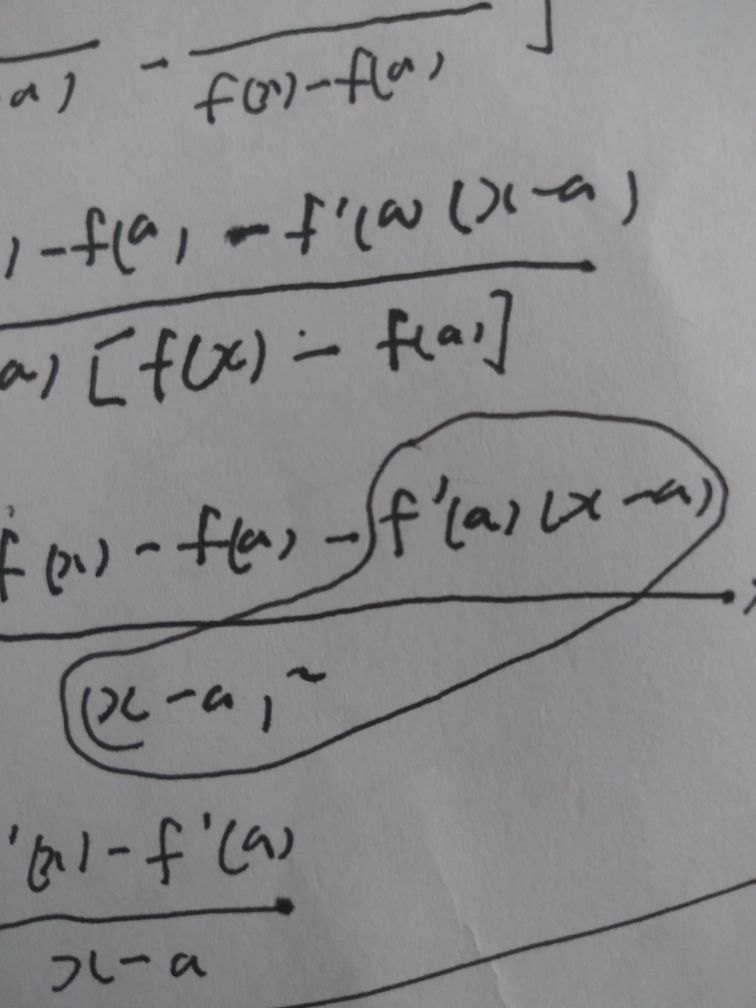 a) - ]
f(x)-f(a)
) -f(a) - f'(a) (x-a)
a) [f(x) - f(a)]
f(x) - f(a) - f'(a) (x-a)
(x-a)²
'(x) - f'(a)
x-a